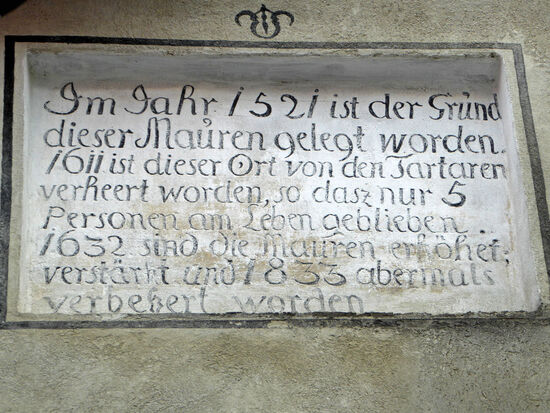 Im Jahr 1521 ist der Grund
dieser Mauren gelegt worden.
1611 ist dieser Ort von den Tartaren
verheert worden, so dasz nur 5
Personen am Leben geblieben.
1632 sind die Mauren erhöhet,
verstärkt und 1833 abermals
verbeßert worden